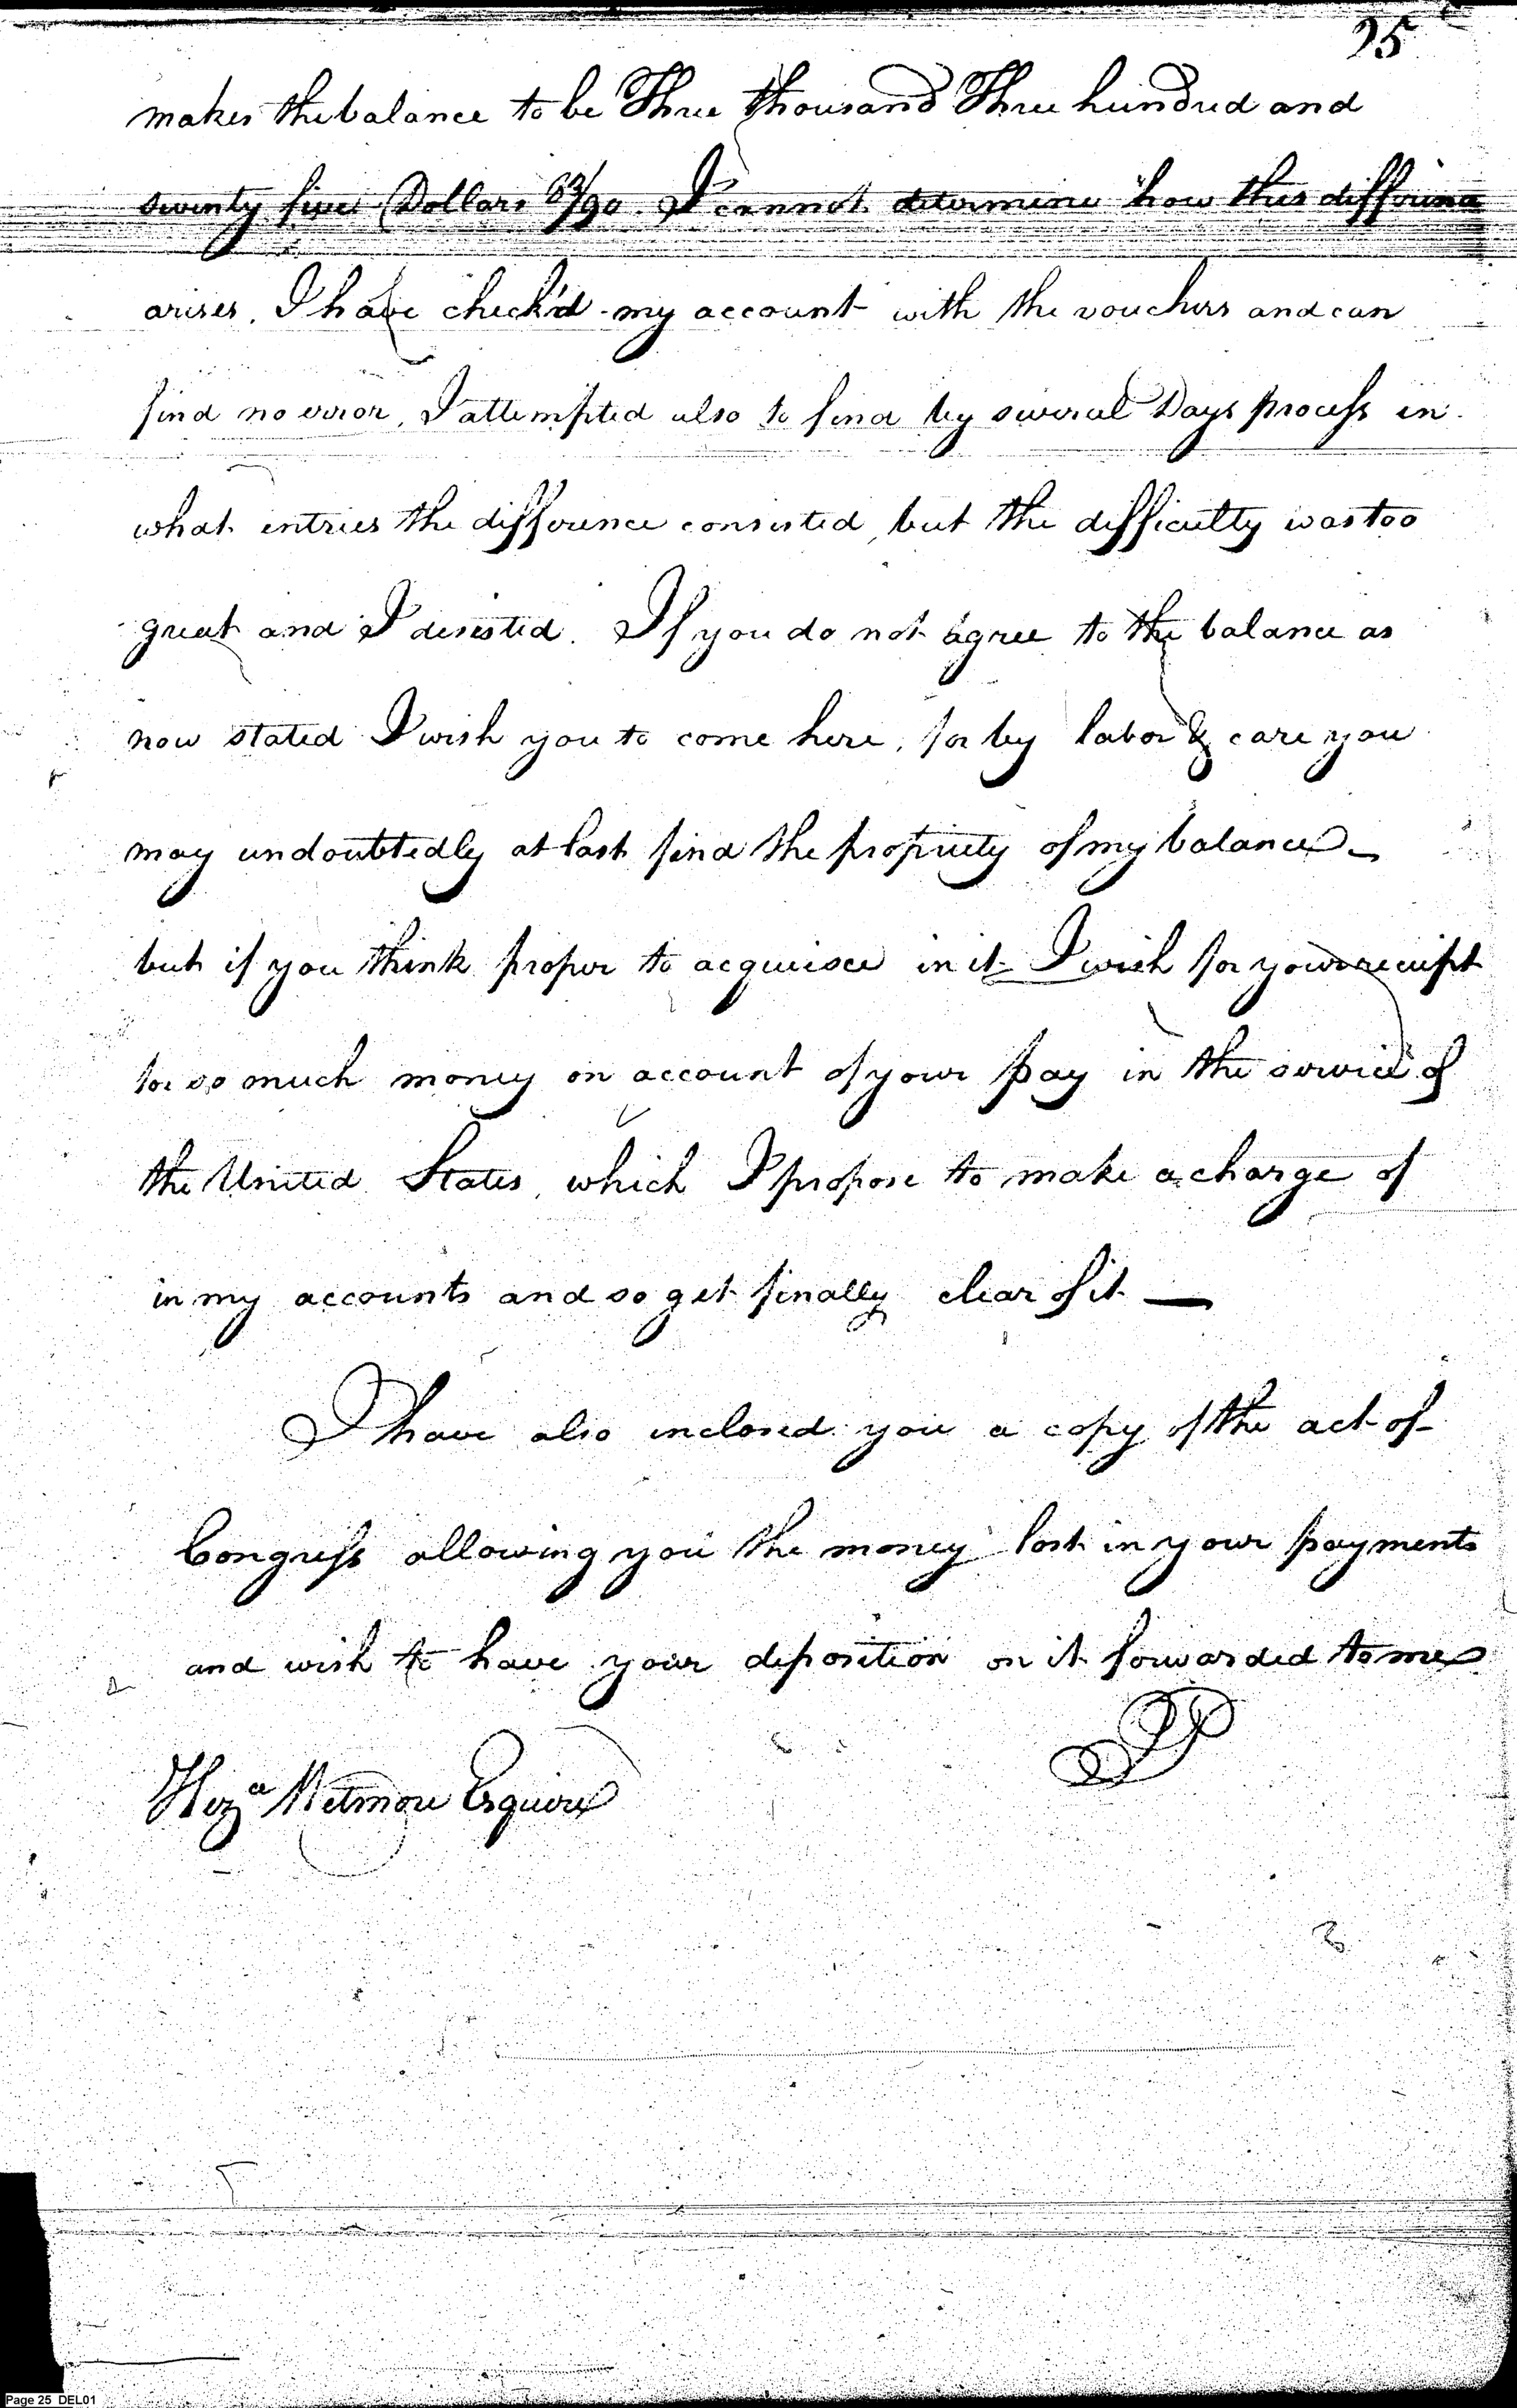 25
makes the balance to be Three thousand Three hundred and
seventy five Dollars 63/90. I cannot determine how this difference
arises. I have check'd my account with the vouchers and can
find no error, I attempted also to find by several Days process in
what entries the difference consisted, but the difficulty was too
great and I desisted. If you do not agree to the balance as
now stated I wish you to come here, for by labor & care you
may undoubtedly at last find the propriety of my balance –
but if you think proper to acquiesce in it I wish for your receipt
for so much money on account of your pay in the service of
the United States, which I propose to make a charge of
in my accounts and so get finally clear of it —
I have also inclosed you a copy of the act of
Congress allowing you the money lost in your payments
and wish to have your deposition on it forwarded to me
JP
Heza Wetmore Esquire
Page 25 DEL01